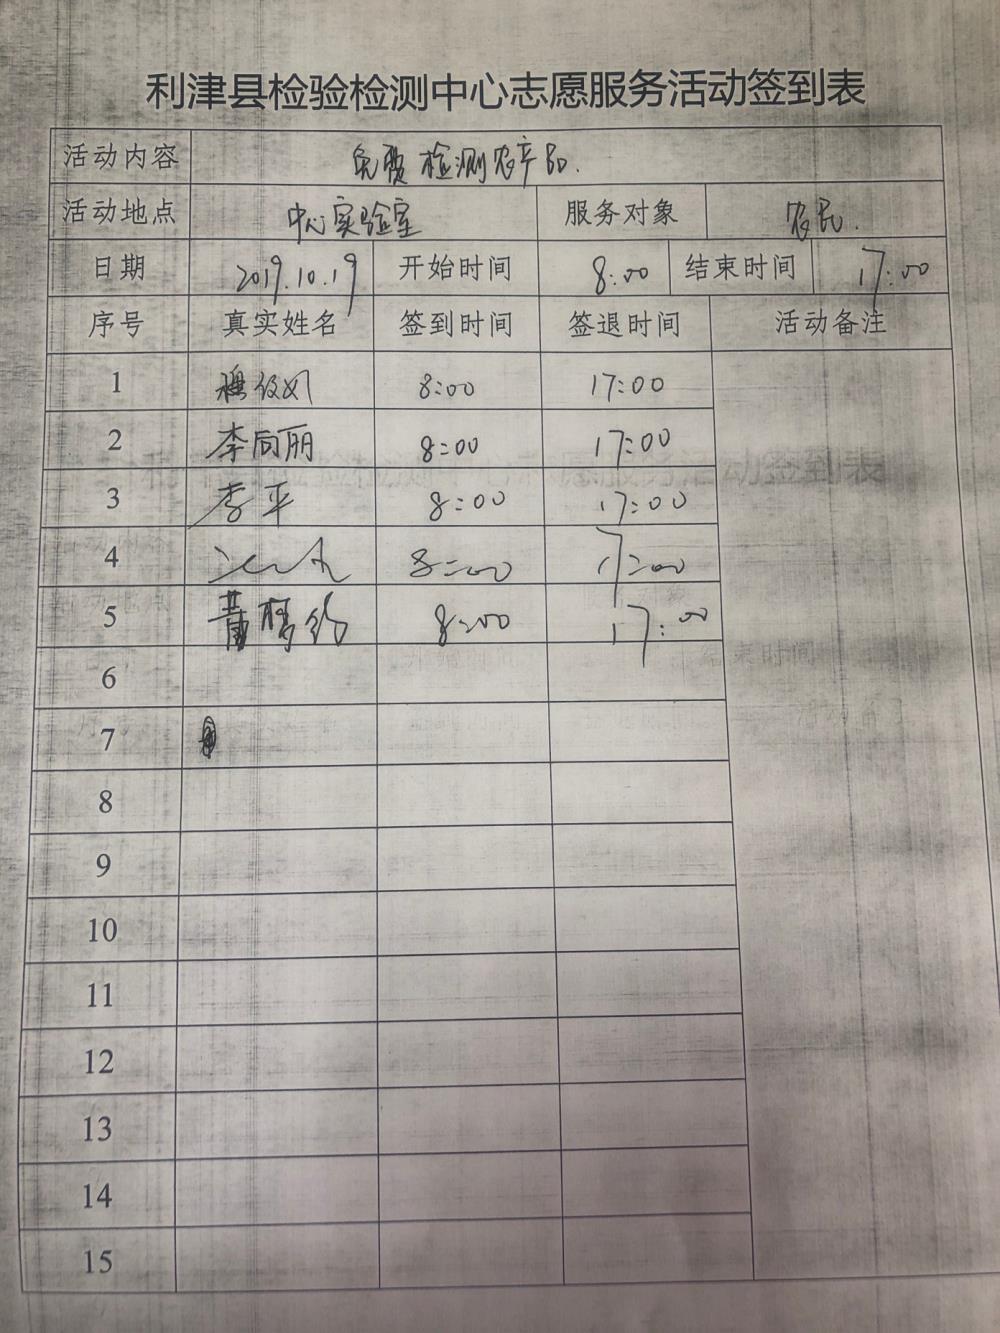 利津县检验检测中心志愿服务活动签到表
活动内容 免费检测农产品.
活动地点 中心实验室 服务对象 农民.
日期 2019.10.19 开始时间 8:00 结束时间 17:00
序号 真实姓名 签到时间 签退时间 活动备注
1 8:00 17:00
2 李向丽 8:00 17:00
3 李平 8:00 17:00
4 8:00 17:00
5 8:00 17:00
6
7
8
9
10
11
12
13
14
15